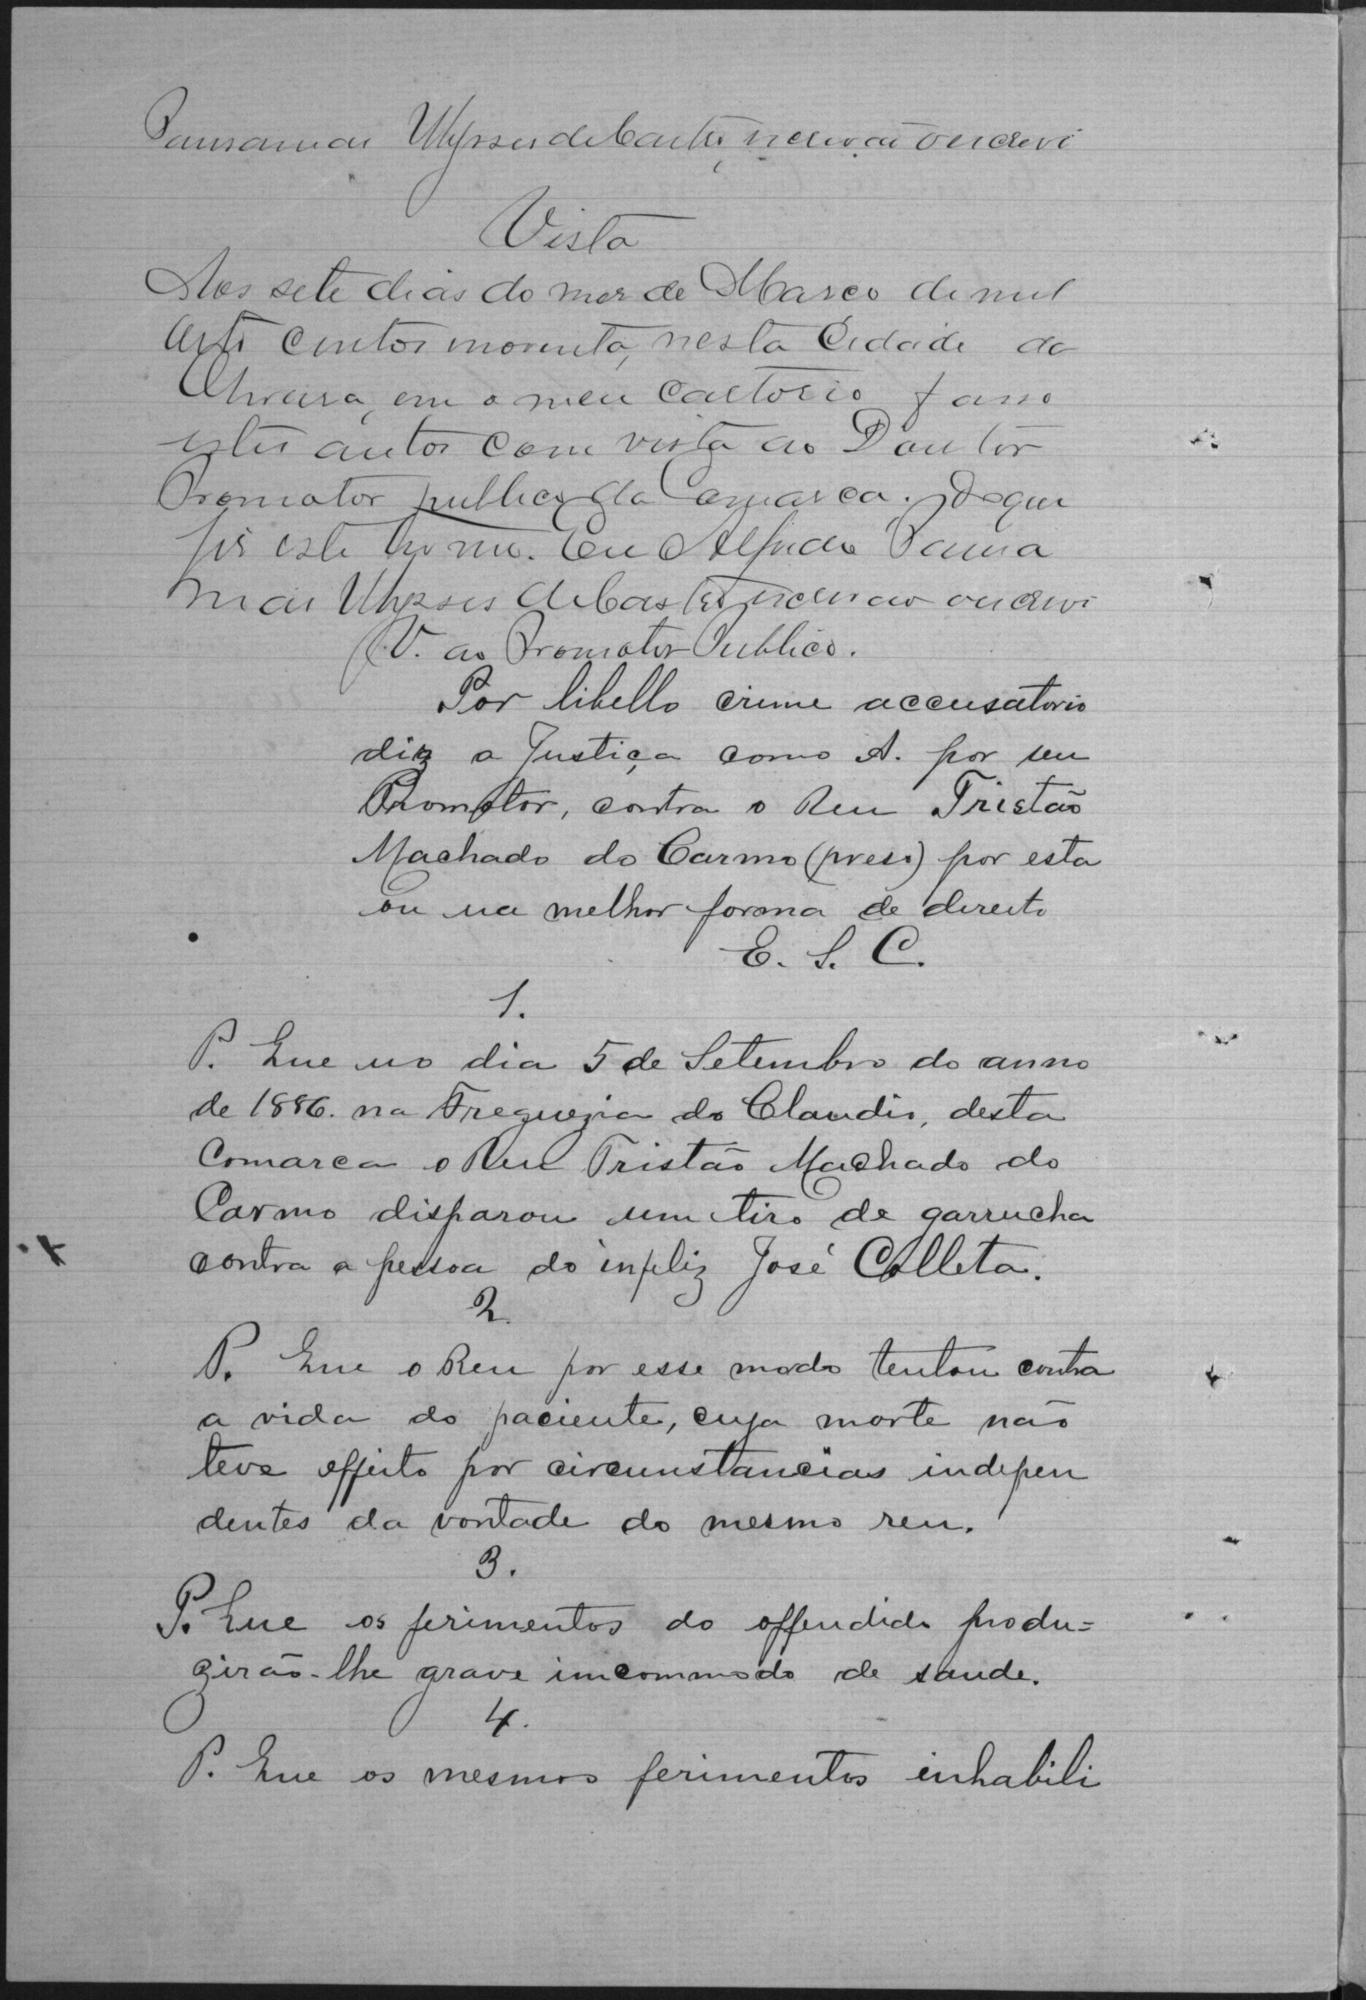 Ulysses de Castro, escrivão o escrevi
Vista
Aos sete dias do mes de Março de mil
oito centos noventa, nesta Cidade da
Oliveira, em o meu cartorio faço
estes autos com vista ao Doutor
Promotor publico da Comarca. Do que
fiz este termo. Eu Alfredo
Ulysses de Castro, escrivão o escrevi
V. ao Promotor Publico.
Por libello crime accusatorio
diz a Justiça como A. por seu
Promotor, contra o Reu Tristão
Machado do Carmo (preso) por esta
ou na melhor forma de direito
E. S. C.
1.
P. Que no dia 5 de Setembro do anno
de 1886. na Freguezia do Claudio, desta
Comarca o Reu Tristão Machado do
Carmo disparou um tiro de garrucha
contra a pessoa do infeliz José Colleta.
2.
P. Que o Reu por esse modo tentou contra
a vida do paciente, cuja morte não
teve effeito por circumstancias indepen
dentes da vontade do mesmo reu.
3.
P. Que os ferimentos do offendido produ=
zirão-lhe grave imcommodo de saude.
4.
P. Que os mesmos ferimentos inhabili